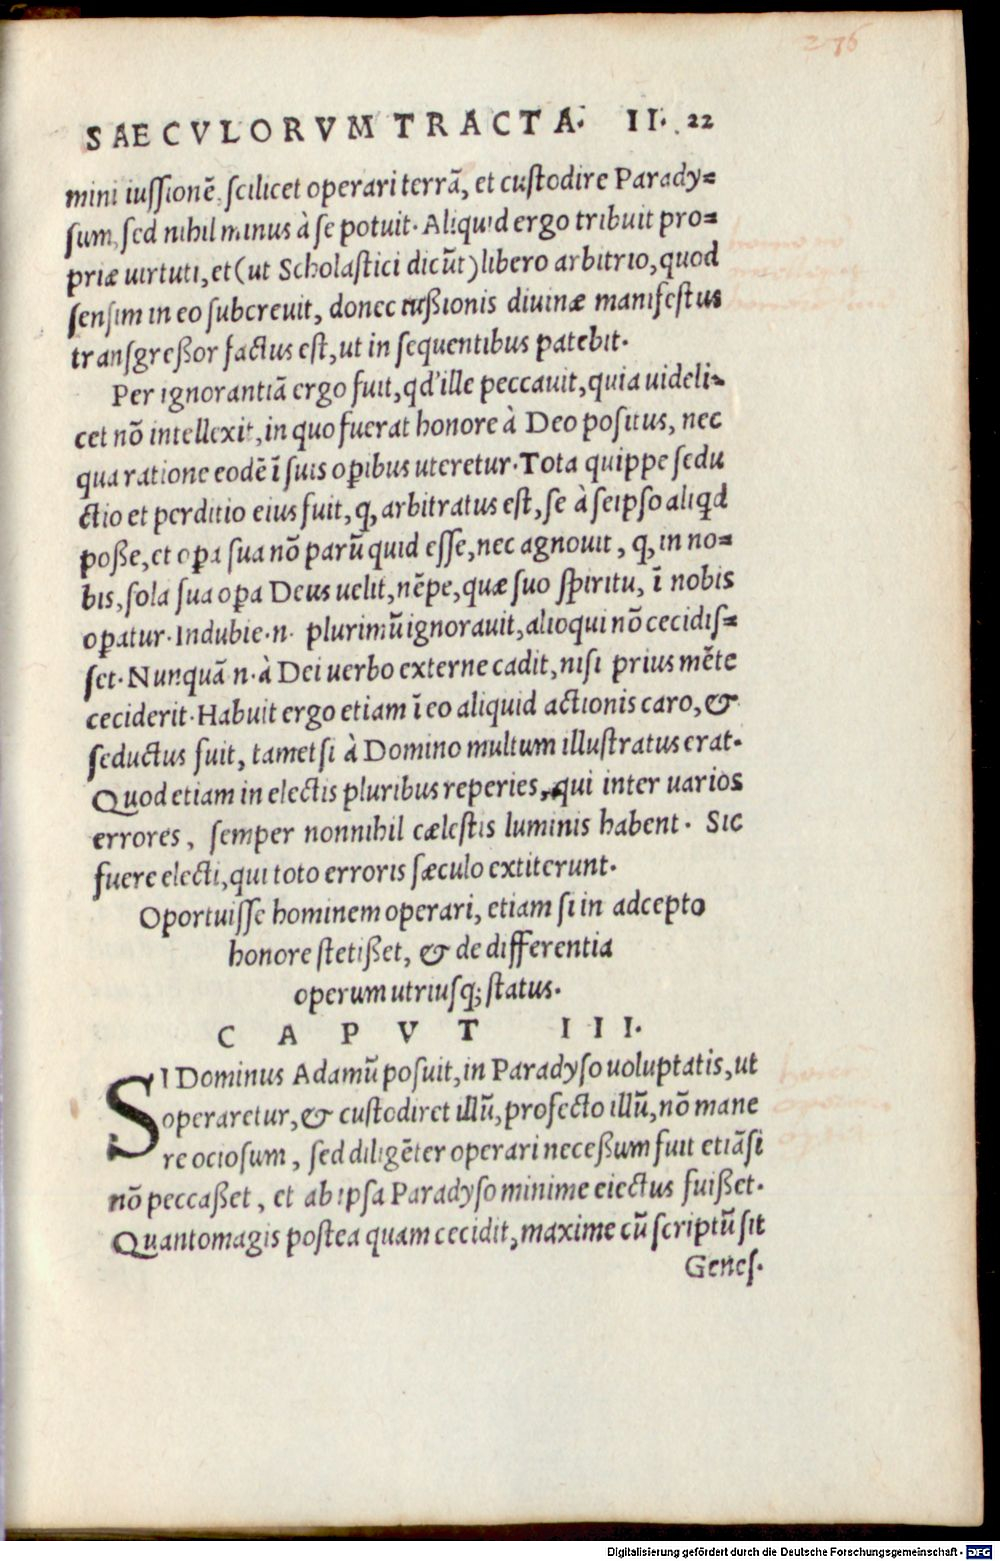 276
SAECVLORVM TRACTA. II. 22
mini iussionē, scilicet operari terrā, et custodire Parady=
sum, sed nihil minus à se potuit. Aliquid ergo tribuit pro=
priæ uirtuti, et (ut Scholastici dicūt) libero arbitrio, quod
sensim in eo subcreuit, donec iußionis diuinæ manifestus
transgreßor factus est, ut in sequentibus patebit.
Per ignorantiā ergo fuit, qd' ille peccauit, quia uideli=
cet nō intellexit, in quo fuerat honore à Deo positus, nec
qua ratione eodē ī suis oꝑibus uteretur. Tota quippe sedu
ctio et perditio eius fuit, ꝙ, arbitratus est, se à seipso aliqd
poße, et oꝑa sua nō parū quid esse, nec agnouit, ꝙ, in no=
bis, sola sua oꝑa Deus uelit, nēpe, quæ suo spiritu, ī nobis
oꝑatur. Indubie .n. plurimū ignorauit, alioqui nō cecidis=
set. Nunquā .n. à Dei uerbo externe cadit, nisi prius mēte
ceciderit. Habuit ergo etiam ī eo aliquid actionis caro, &
seductus fuit, tametsi à Domino multum illustratus erat.
Quod etiam in electis pluribus reperies, qui inter uarios
errores, semper nonnihil cælestis luminis habent. Sic
fuere electi, qui toto erroris sæculo extiterunt.
Oportuisse hominem operari, etiam si in adcepto
honore stetißet, & de differentia
operum utriusq; status.
CAPVT III.
SI Dominus Adamū posuit, in Paradyso uoluptatis, ut
operaretur, & custodiret illū, profecto illū, nō mane
re ociosum, sed diligēter operari neceßum fuit etiāsi
nō peccaßet, et ab ipsa Paradyso minime eiectus fuißet.
Quantomagis postea quam cecidit, maxime cū scriptū sit
Genes.
Digitalisierung gefördert durch die Deutsche Forschungsgemeinschaft - DFG